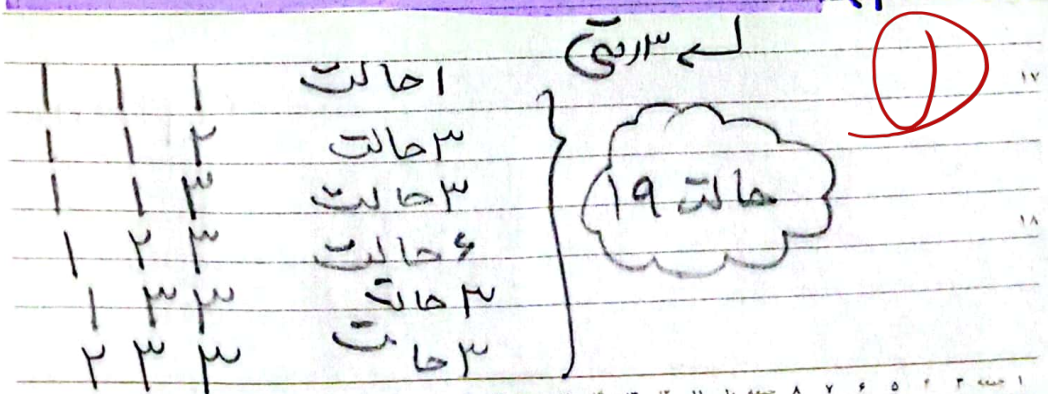 ۳ رقمی
۱ ۱ ۱ ۱ حالت
۱ ۱ ۲ ۳ حالت
۱ ۱ ۳ ۳ حالت
۱ ۲ ۳ ۶ حالت
۱ ۳ ۳ ۳ حالت
۲ ۳ ۳ ۳ حالت
۱۹ حالت
۱۷
۱۸